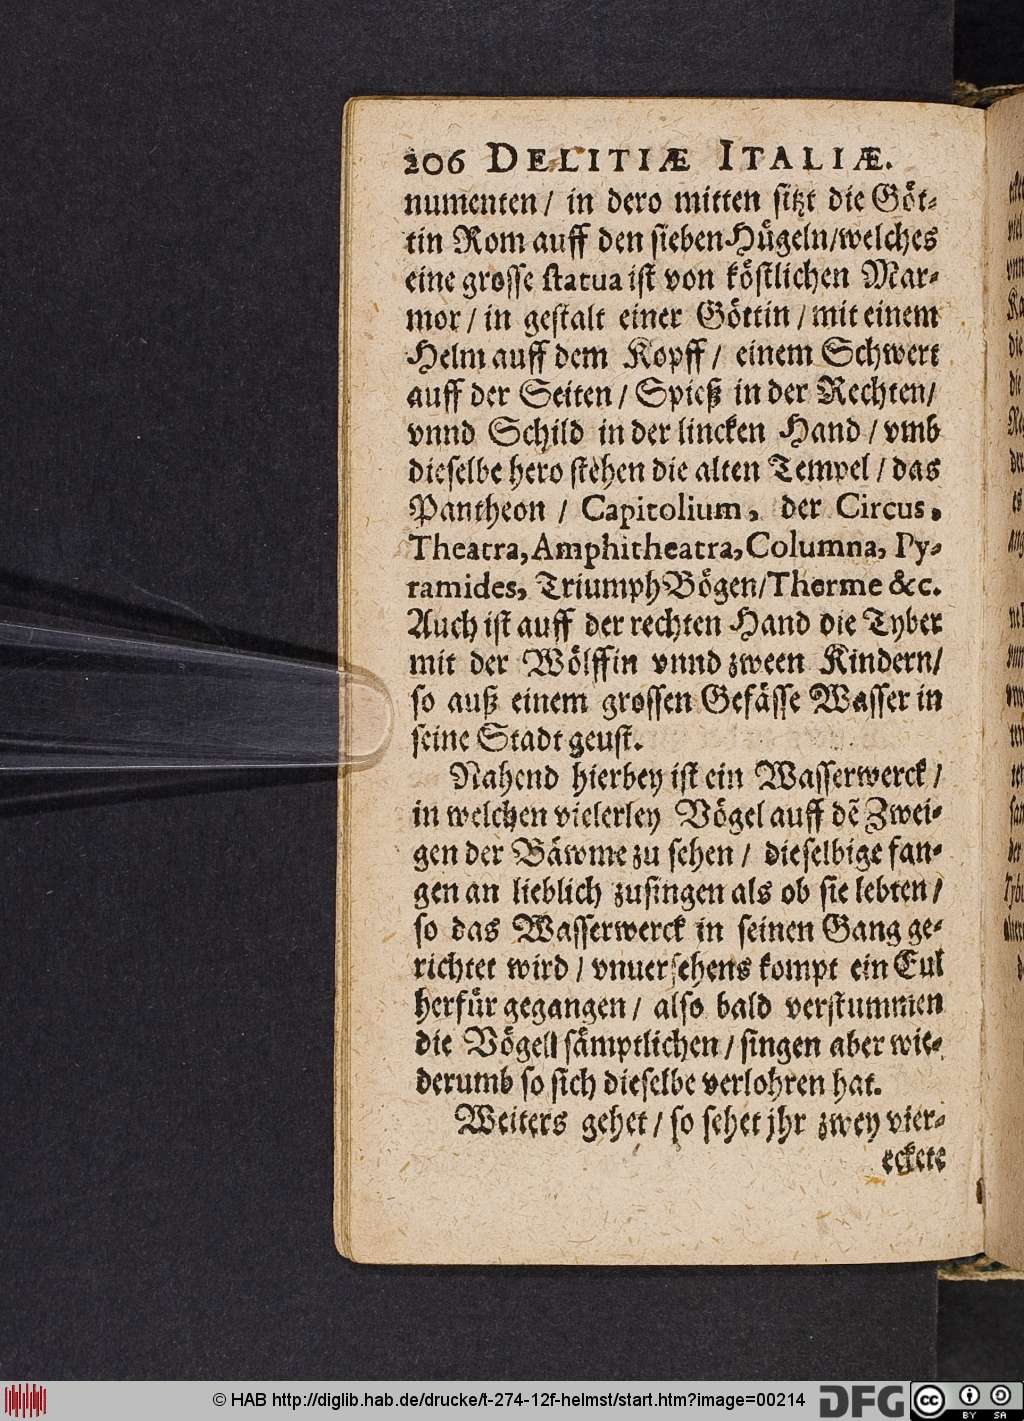 206 DELITIÆ ITALIÆ.
numenten / in dero mitten sitzt die Göt-
tin Rom auff den sieben Hügeln / welches
eine grosse statua ist von köstlichen Mar-
mor / in gestalt einer Göttin / mit einem
Helm auff dem Kopff / einem Schwert
auff der Seiten / Spieß in der Rechten /
vnnd Schild in der lincken Hand / vmb
dieselbe hero stehen die alten Tempel / das
Pantheon / Capitolium, der Circus,
Theatra, Amphitheatra, Columna, Py-
ramides, Triumph Bögen / Therme &c.
Auch ist auff der rechten Hand die Tyber
mit der Wölffin vnnd zween Kindern /
so auß einem grossen Gefässe Wasser in
seine Stadt geust.
Nahend hierbey ist ein Wasserwerck /
in welchen vielerley Vögel auff dē Zwei-
gen der Bäwme zu sehen / dieselbige fan-
gen an lieblich zusingen als ob sie lebten /
so das Wasserwerck in seinen Gang ge-
richtet wird / vnuersehens kompt ein Eul
herfür gegangen / also bald verstummen
die Vögell sämptlichen / singen aber wie-
derumb so sich dieselbe verlohren hat.
Weiters gehet / so sehet jhr zwey vier-
eckete
© HAB http://diglib.hab.de/drucke/t-274-12f-helmst/start.htm?image=00214
DFG
cc BY SA